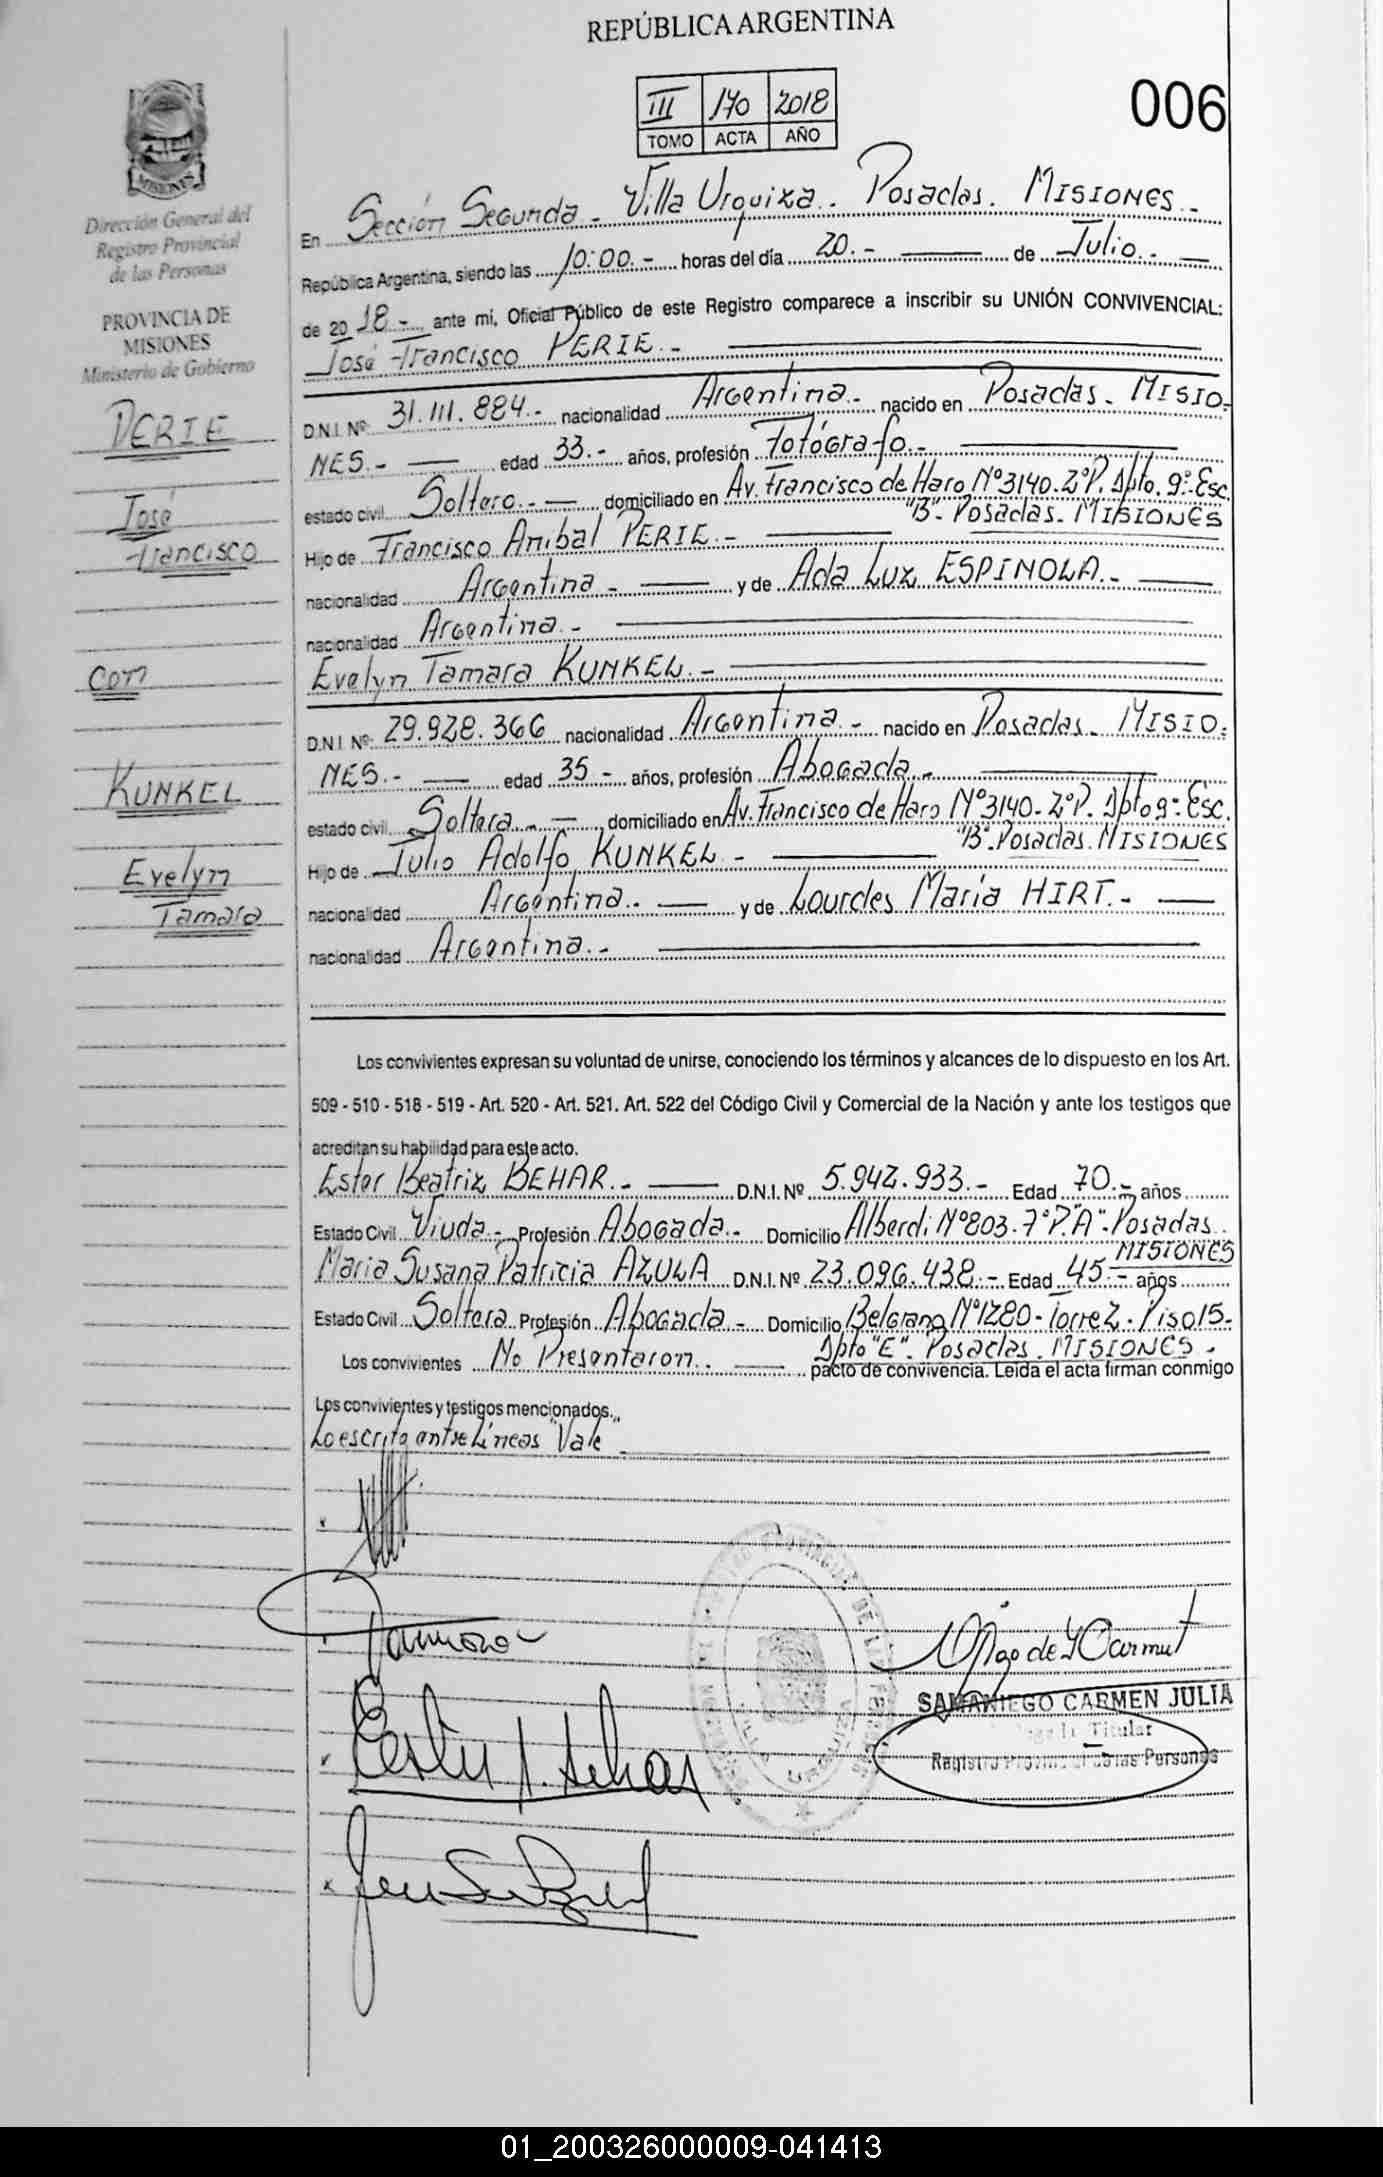 REPÚBLICA ARGENTINA
III 170 2018
TOMO ACTA AÑO
006
MISIONES
Dirección General del
Registro Provincial
de las Personas
PROVINCIA DE
MISIONES
Ministerio de Gobierno
PERIE
José
Francisco
con
KUNKEL
Evelyn
Tamara
En Sección Segunda - Villa Urquiza. Posadas. MISIONES -
República Argentina, siendo las 10:00.- horas del día 20.- de Julio.-
de 2018 - ante mí, Oficial Público de este Registro comparece a inscribir su UNIÓN CONVIVENCIAL:
José Francisco PERIE.-
D.N.I. Nº 31.111.884.- nacionalidad Argentina.- nacido en Posadas - MISIO-
NES.- edad 33.- años, profesión Fotógrafo.-
estado civil Soltero.- domiciliado en Av. Francisco de Haro Nº3140-2ºP. Dpto. 9º-Esc.
"B"- Posadas - MISIONES
Hijo de Francisco Anibal PERIE.-
nacionalidad Argentina - y de Ada Luz ESPINOLA.-
nacionalidad Argentina.-
Evelyn Tamara KUNKEL.-
D.N.I. Nº 29.928.366 nacionalidad Argentina.- nacido en Posadas - MISIO-
NES.- edad 35 - años, profesión Abogada.-
estado civil Soltera.- domiciliado en Av. Francisco de Haro Nº3140-2ºP. Dpto 9º-Esc.
"B"- Posadas. MISIONES
Hijo de Julio Adolfo KUNKEL.-
nacionalidad Argentina.- y de Lourdes Maria HIRT.-
nacionalidad Argentina.-
Los convivientes expresan su voluntad de unirse, conociendo los términos y alcances de lo dispuesto en los Art.
509 - 510 - 518 - 519 - Art. 520 - Art. 521. Art. 522 del Código Civil y Comercial de la Nación y ante los testigos que
acreditan su habilidad para este acto.
Ester Beatriz BEHAR.- D.N.I. Nº 5.942.933.- Edad 70.- años
Estado Civil Viuda.- Profesión Abogada.- Domicilio Alberdi Nº803-7ºP."A"-Posadas
MISIONES
Maria Susana Patricia AZULA D.N.I. Nº 23.096.438.- Edad 45.- años
Estado Civil Soltera Profesión Abogada.- Domicilio Belgrano Nº1280-Torre 2-Piso 15-
Dpto "E"- Posadas. MISIONES -
Los convivientes No Presentaron.. pacto de convivencia. Leída el acta firman conmigo
Los convivientes y testigos mencionados.
Lo escrito entre Líneas "Vale"
Tamara
SAMANIEGO CARMEN JULIA
Titular
Registro Provincial de las Personas
01_200326000009-041413